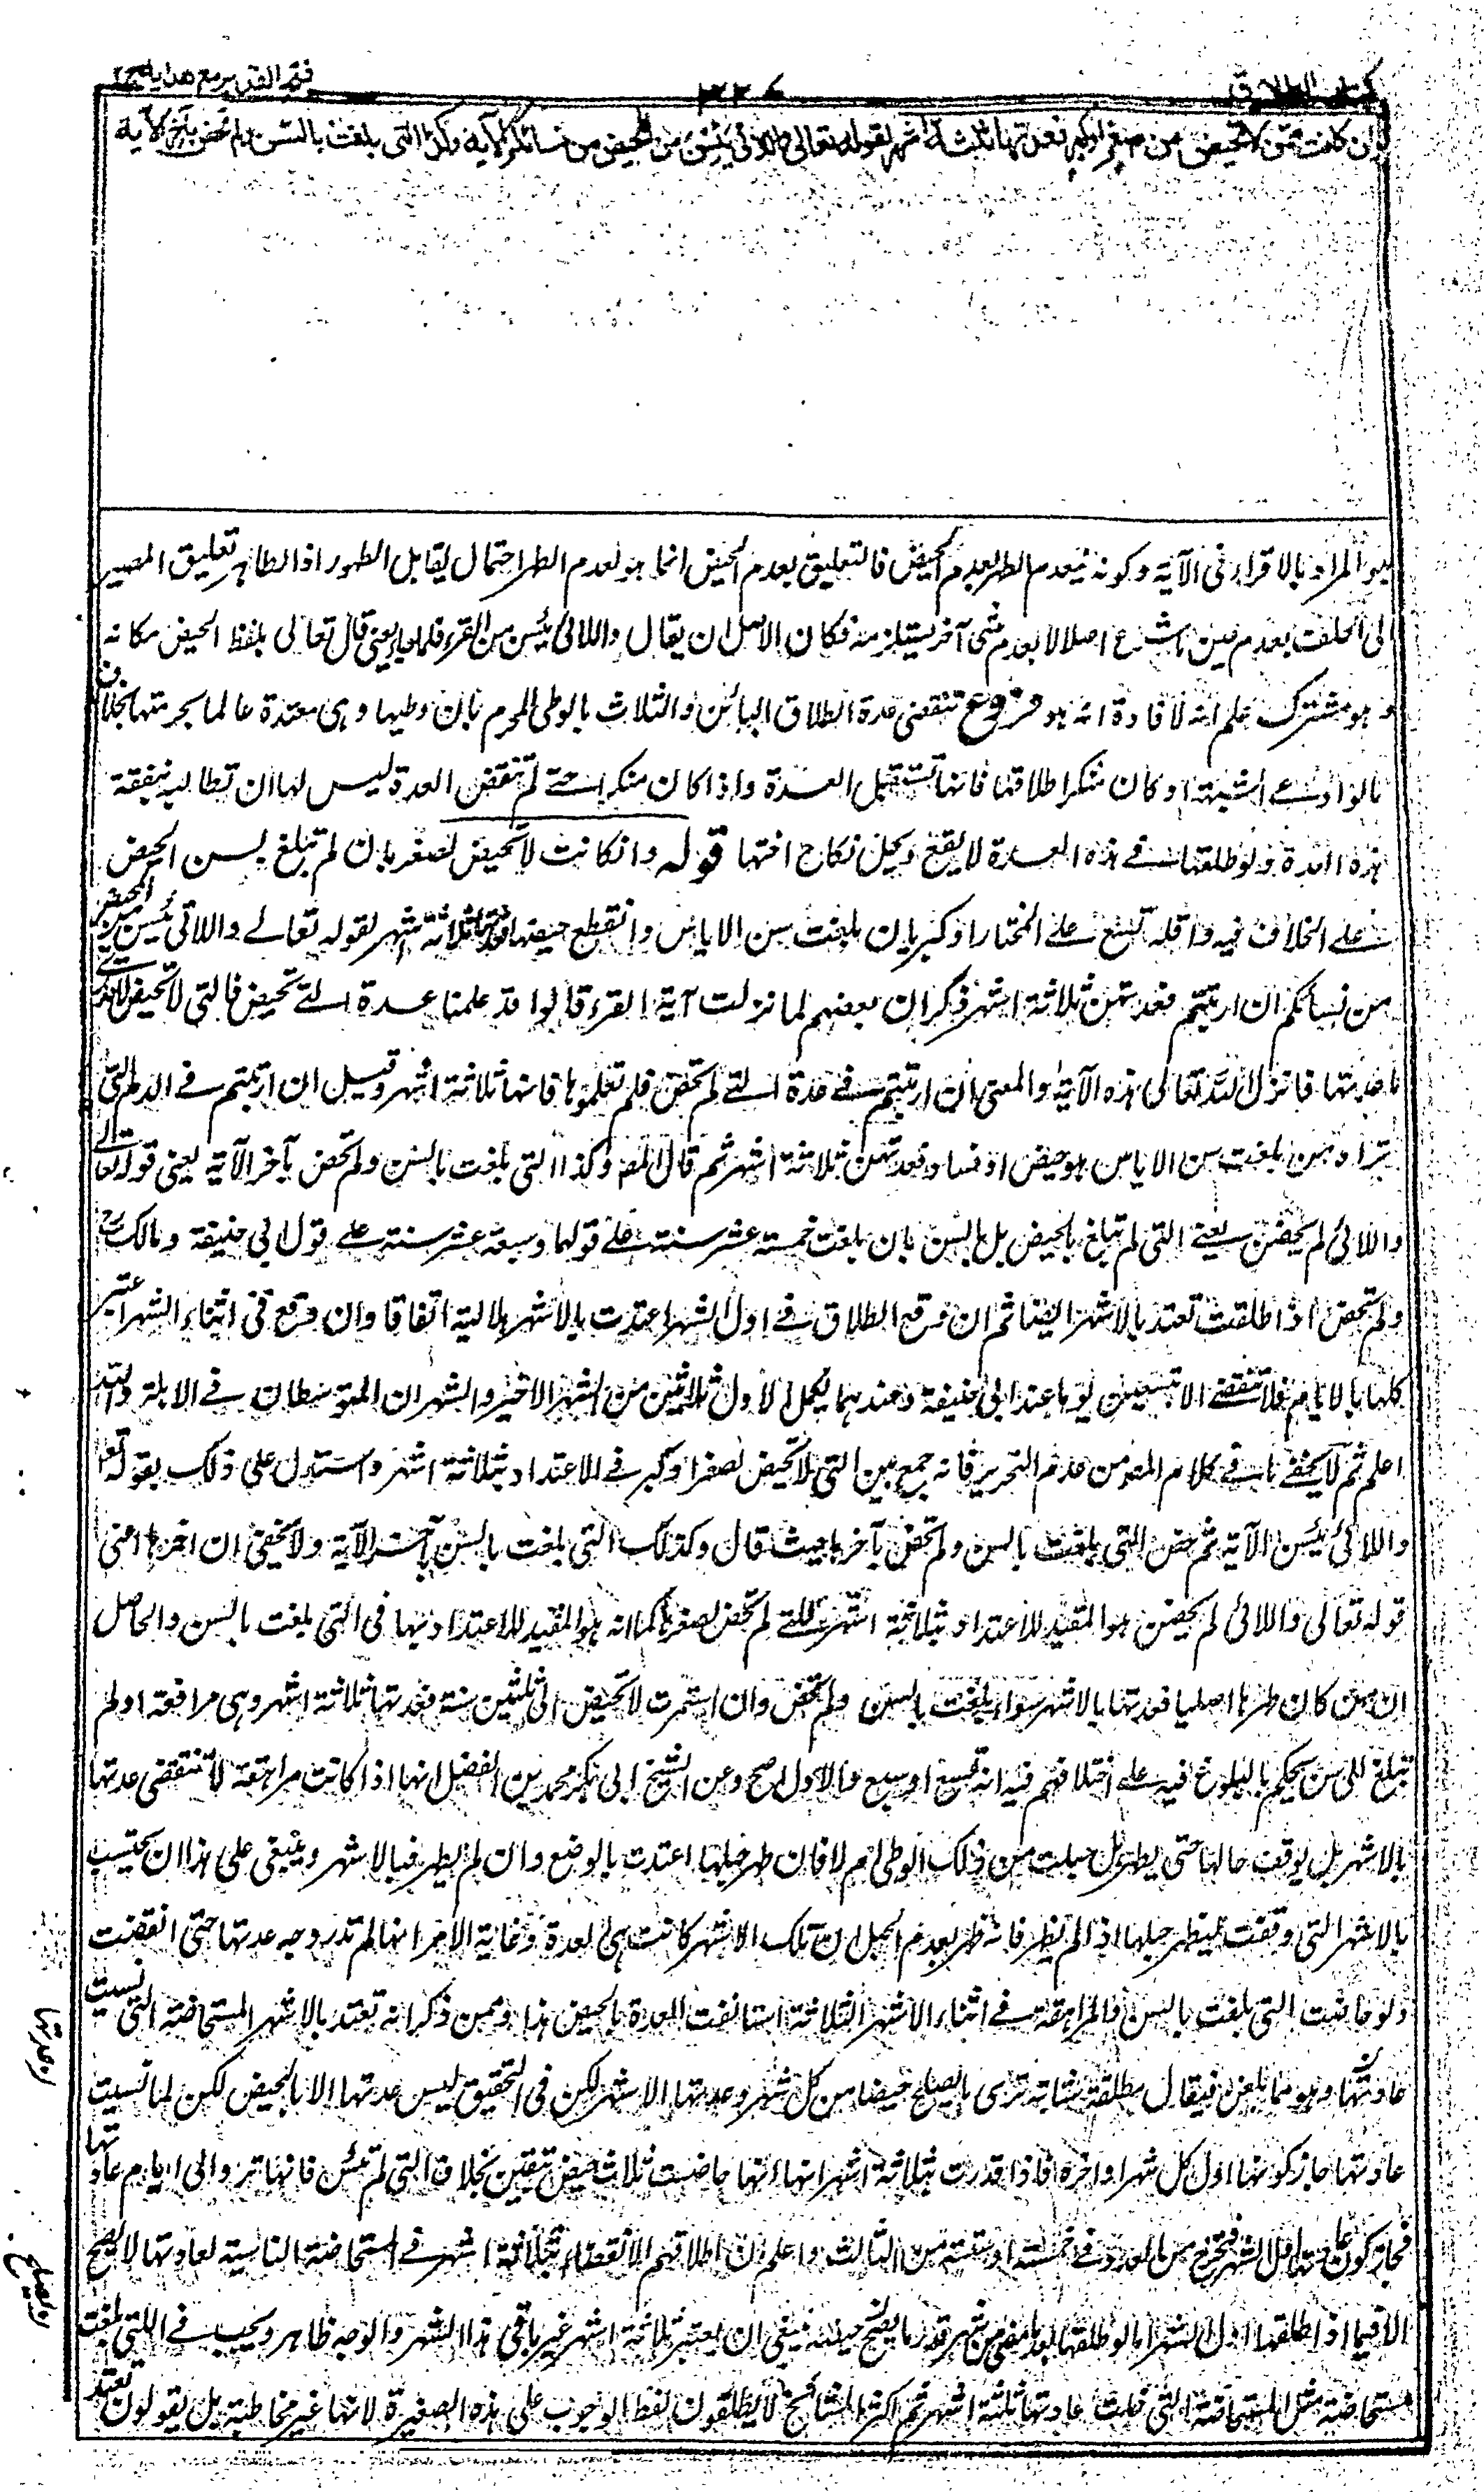 كتاب الطلاق
فتح القدير مع هدايه ج٢
وان كانت ممن لا تحيض من صغر او كبر فعدتها ثلثة اشهر لقوله تعالى واللائي يئسن من المحيض من نسائكم الآية وكذا التي بلغت بالسن ولم تحض بآخر الآية
المراد بالاقراء فى الآية وكونه بعدم الطهر بعدم الحيض فالتعليق بعدم الحيض انما هو لعدم الطهر احتمال يقابل الظهور اذ الظاهر تعليق المصير
الى الخلف بعدم عين ما شرع اصلا لا بعدم شئ آخر يستلزمه فكان الاصل ان يقال واللائى يئسن من القرء فلما يعنى قال تعالى بلفظ الحيض مكانه
وهو مشترك علم انه لافادة انه هو فروع تنقضى عدة الطلاق البائن والثلاث بالوطى المحرم بان وطيها وهى معتدة عالما بحرمتها بخلاف
ما لو ادعے الشبهة او كان منكرا طلاقها فانها تستقبل العدة واذا كان منكرا حتے لم تنقض العدة ليس لها ان تطالبه بنفقة
هذه العدة ولو طلقها فے هذه العدة لا يقع ويحل نكاح اختها قوله وان كانت لا تحيض لصغر بان لم تبلغ بسن الحيض
علے الخلاف فيه واقله تسع علے المختار او كبر بان بلغت سن الاياس وانقطع حيضها فعدتها ثلاثة اشهر لقوله تعالے واللائى يئسن من المحيض
من نسائكم ان ارتبتم فعدتهن ثلاثة اشهر ذكر ان بعضهم لما نزلت آية القرء قالوا قد علمنا عدة التے تحيض فالتى لا تحيض لا ندرى
ما عدتها فانزل الله تعالى هذه الآية والمعنى ان ارتبتم فے عدة التے لم تحض فلم تعلموها فانها ثلاثة اشهر وقيل ان ارتبتم فے الدم التى
تراه من بلغت سن الاياس هو حيض او فساد فعدتهن ثلاثة اشهر ثم قال المص وكذا التى بلغت بالسن ولم تحض بآخر الآية يعنى قوله تعالى
واللائى لم يحضن يعنے التى لم تبلغ بالحيض بل بالسن بان بلغت خمسة عشر سنة علے قولهما وسبعة عشر سنة علے قول ابى حنيفة ومالك
ولم تحض اذا طلقت تعتد بالاشهر ايضا ثم ان وقع الطلاق فے اول الشهر اعتدت بالاشهر الهلالية اتفاقا وان وقع فى اثناء الشهر اعتبر
كلها بالايام فلا تنقضے الا بتسعين يوما عند ابى حنيفة وعندهما يكمل الاول ثلاثين من الشهر الاخير والشهران المتوسطان فے الاهلة والله
اعلم ثم لا يخفے ما فے كلام المص من عدم التحرير فانه جمع بين التى لا تحيض لصغر او كبر فے الاعتداد بثلاثة اشهر واستدل على ذلك بقوله تعالى
واللائى يئسن الآية ثم خص التى بلغت بالسن ولم تحض بآخرها حيث قال وكذلك التى بلغت بالسن بآخر الآية ولا يخفى ان اخرها اعنى
قوله تعالى واللائى لم يحضن هو المفيد للاعتداد بثلاثة اشهر للتے لم تحض لصغرها كما انه هو المفيد للاعتداد بها فى التى بلغت بالسن والحاصل
ان من كان طهرها اصليا فعدتها بالاشهر سواء بلغت بالسن ولم تحض وان استمرت لا تحيض الى ثلثين سنة فعدتها ثلاثة اشهر وهى مراهقة او لم
تبلغ الى سن يحكم بالبلوغ فيه علے اختلافهم فيه انه تسع او سبع والاول اصح وعن الشيخ ابى بكر محمد بن الفضل انها اذا كانت مراهقة لا تنقضى عدتها
بالاشهر بل يوقف حالها حتى يظهر هل حبلت من ذلك الوطى ام لا فان ظهر حبلها اعتدت بالوضع وان لم يظهر فبالاشهر وينبغى على هذا ان يحتسب
بالاشهر التى وقفت ليظهر حبلها اذا لم يظهر فانه ظهر بعدم الحبل ان تلك الاشهر كانت هى العدة وغاية الامر انها لم تدر وجه عدتها حتى انقضت
ولو حاضت التى بلغت بالسن والمراهقة فے اثناء الاشهر الثلاثة استانفت العدة بالحيض هذا وممن ذكر انه تعتد بالاشهر المستحاضة التى نسيت
عادتها وهو مما يلغز فيقال مطلقة شابة ترى ما يصلح حيضا من كل شهر وعدتها الاشهر لكن فى التحقيق ليس عدتها الا بالحيض لكن لما نسيت
عادتها جاز كونها اول كل شهر او اخره فاذا قدرت بثلاثة اشهر علم انها حاضت ثلاث حيض بيقين بخلاف التى لم تنس فانها ترد الى ايام عادتها
فجاز كون عادتها اول الشهر فتخرج من العدة فے خمسة او ستة من الثالث واعلم ان اطلاقهم الانقضاء بثلاثة اشهر فے المستحاضة الناسية لعادتها لا يصح
الا فيما اذا طلقها اول الشهر اما لو طلقها بعد ما مضى من الشهر قدر ما يصلح حيضة ينبغى ان يعتبر ثلاثة اشهر غير باقى هذا الشهر والوجه ظاهر ويجب فے اللتى بلغت
مستحاضة مثل المستحاضة التى نسيت عادتها ثلثة اشهر ثم اكثر المشائخ لا يطلقون لفظ الوجوب على هذه الصغيرة لانها غير مخاطبة بل يقولون تعتد